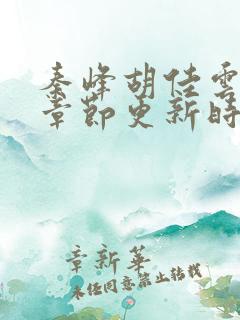 秦峰胡佳雲
章節更新時
章新華
未經同意禁止轉載